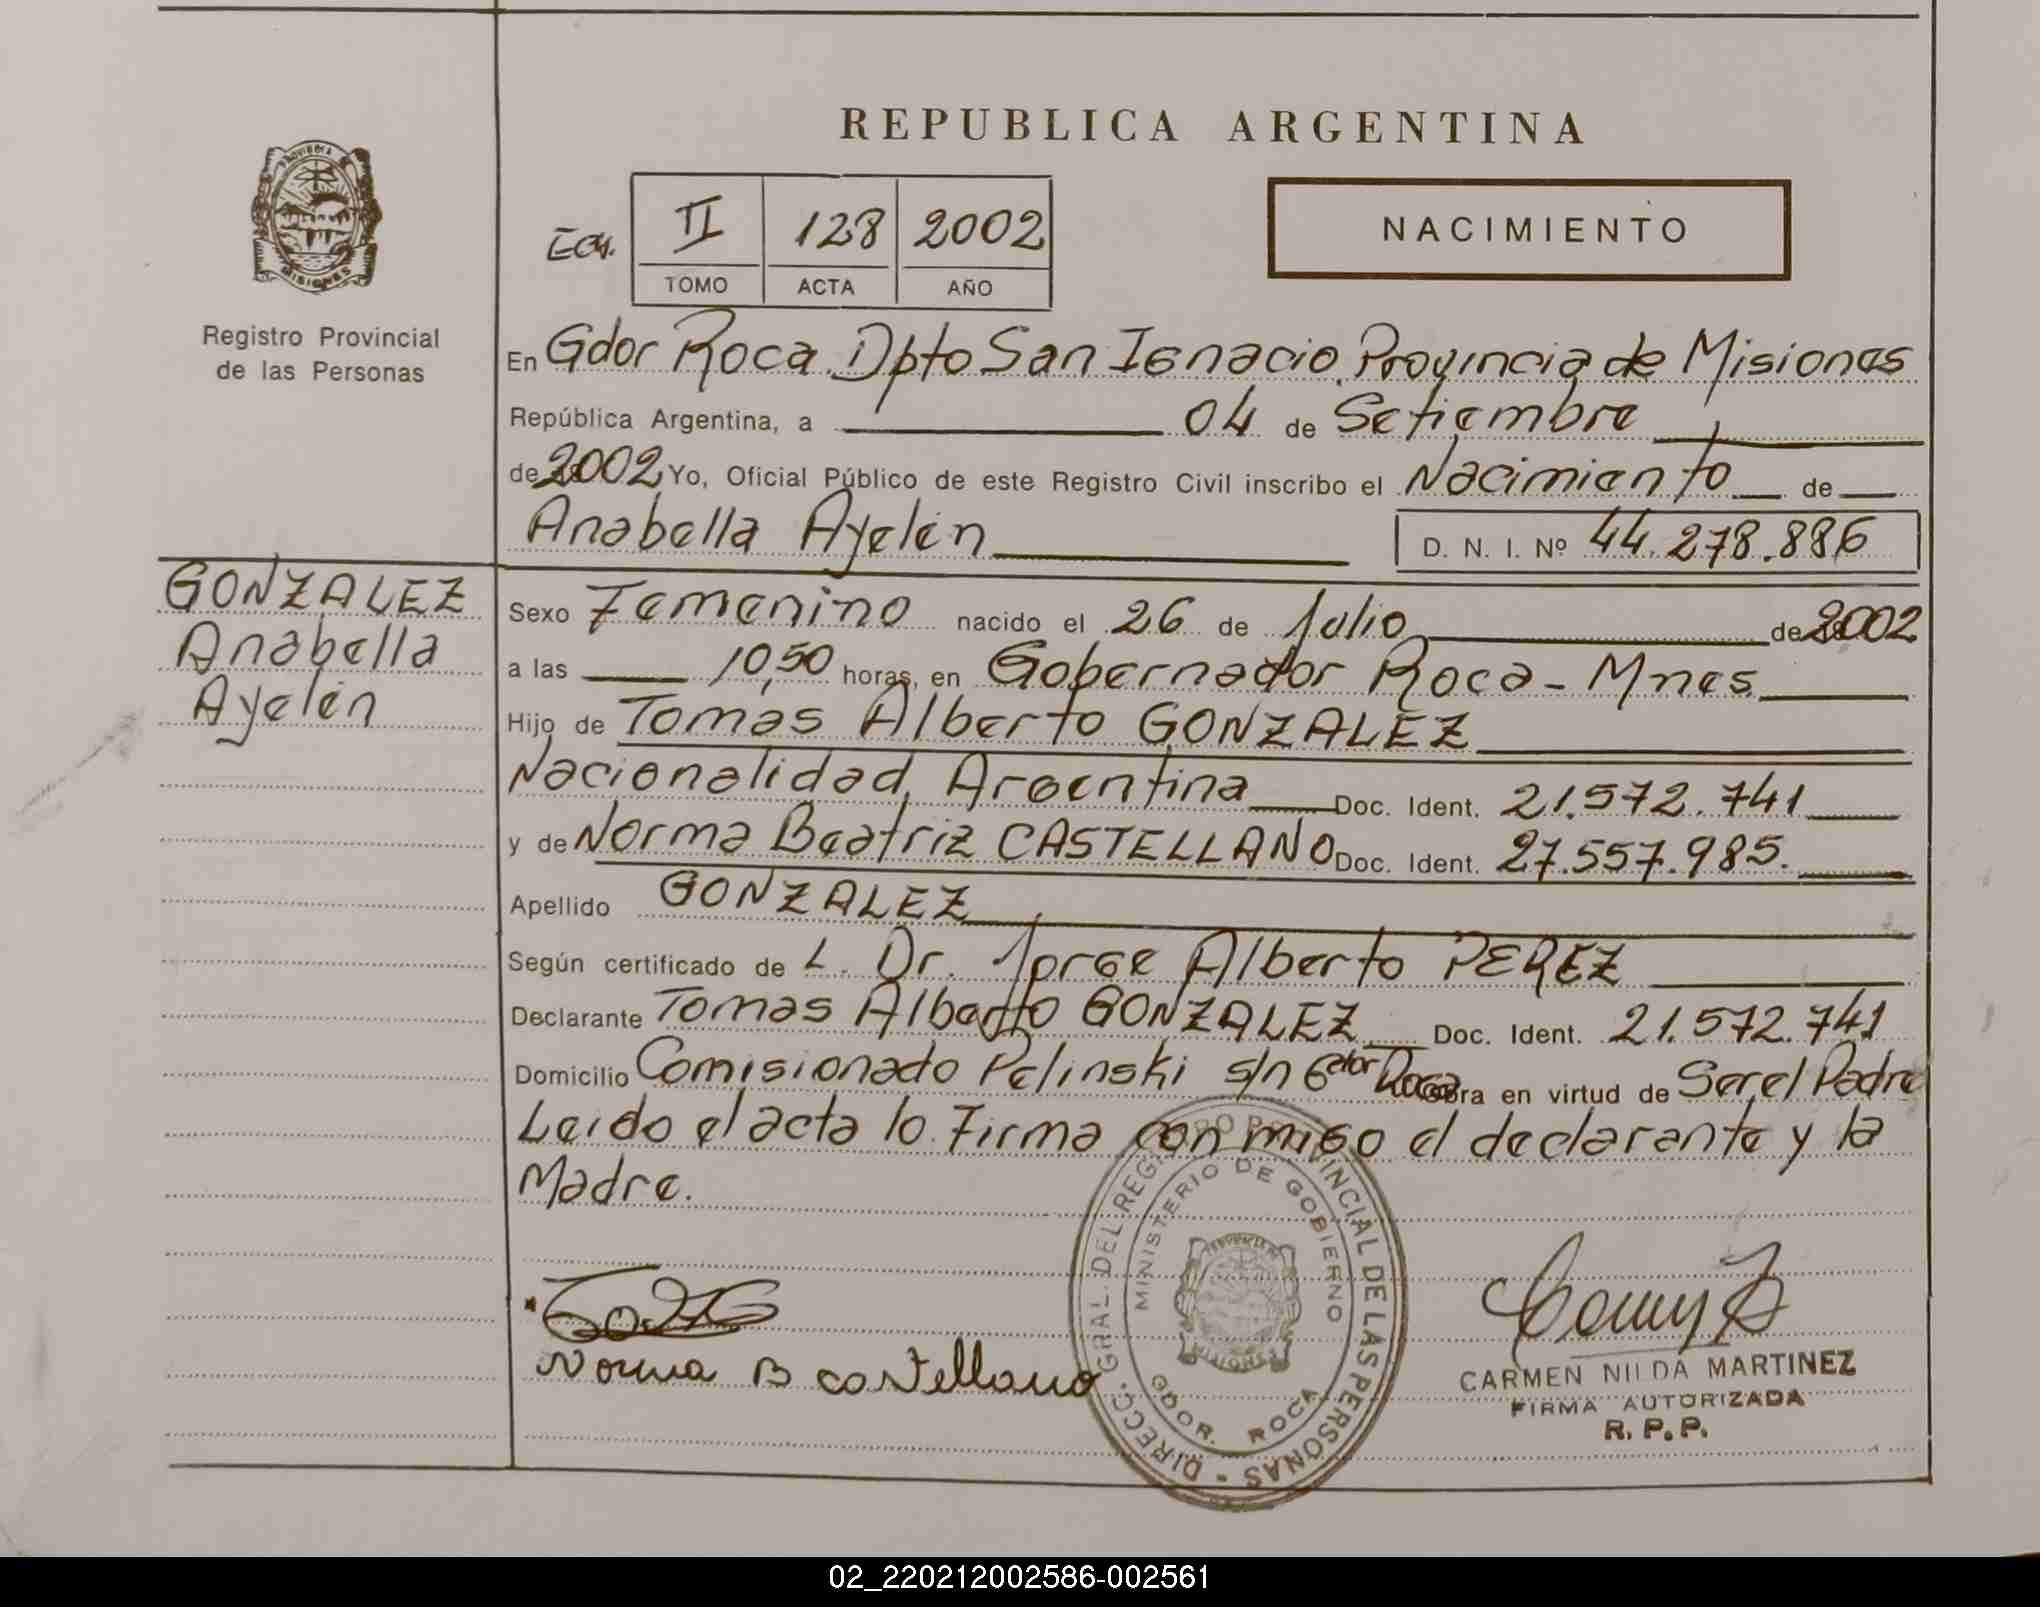 REPUBLICA ARGENTINA
NACIMIENTO
II 128 2002
TOMO ACTA AÑO
PROVINCIA DE
MISIONES
Registro Provincial
de las Personas
En Gdor Roca. Dpto San Ignacio. Provincia de Misiones
República Argentina, a 04 de Setiembre
de 2002 Yo, Oficial Público de este Registro Civil inscribo el Nacimiento de
Anabella Ayelén D. N. I. Nº 44.278.886
GONZALEZ
Anabella
Ayelén
Sexo Femenino nacido el 26 de Julio de 2002
a las 10,50 horas, en Gobernador Roca - Mnes
Hijo de Tomas Alberto GONZALEZ
Nacionalidad, Argentina Doc. Ident. 21.572.741
y de Norma Beatriz CASTELLANO Doc. Ident. 27.557.985.
Apellido GONZALEZ
Según certificado de L. Dr. Jorge Alberto PEREZ
Declarante Tomas Alberto GONZALEZ Doc. Ident. 21.572.741
Domicilio Comisionado Pelinski s/n Gdor Roca Obra en virtud de Ser el Padre
Leido el acta lo Firma con migo el declarante y la
Madre.
Norma B Castellano
DIRECC. GRAL. DEL REG. PROVINCIAL DE LAS PERSONAS
MINISTERIO DE GOBIERNO
MISIONES
GDOR. ROCA
CARMEN NILDA MARTINEZ
FIRMA AUTORIZADA
R. P. P.
02_220212002586-002561